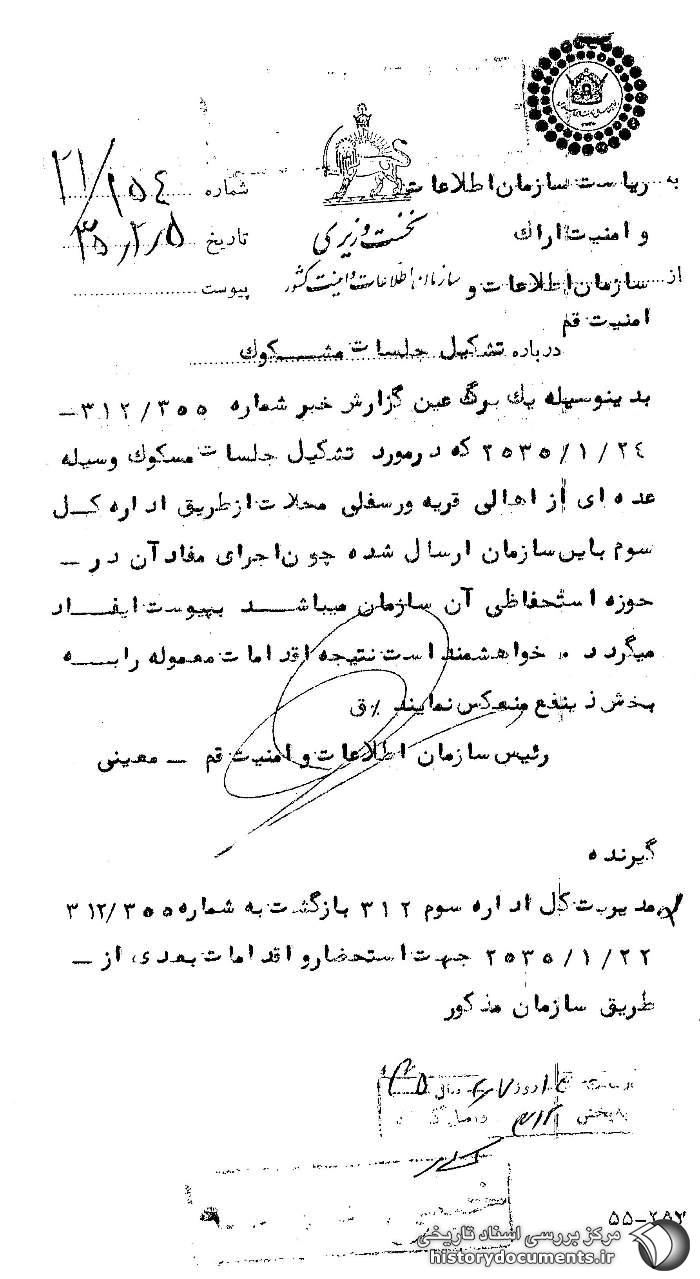 به ریاست سازمان اطلاعات
و امنیت اراك
از سازمان اطلاعات و
امنیت قم
نخست وزیری
سازمان اطلاعات و امنیت کشور
شماره ۲۱/۱۵۴
تاریخ ۳۵/۲/۵
پیوست
درباره تشکیل جلسات مشکوك
بدینوسیله یك برگ عین گزارش خبر شماره ۳۱۲/۳۵۵ –
۲۵۳۵/۱/۲٤ که درمورد تشکیل جلسات مسکوك وسیله
عده ای از اهالی قریه ورسفلی محلات ازطریق اداره کل
سوم باین سازمان ارسال شده چون اجرای مفاد آن در –
حوزه استحفاظی آن سازمان میباشد بپیوست ایفاد
میگردد . خواهشمند است نتیجه اقدامات معموله را به
بخش ذینفع منعکس نمایند ٪ق
رئیس سازمان اطلاعات و امنیت قم – معینی
گیرنده
مدیریت کل اداره سوم ۳۱۲ بازگشت به شماره ۳۱۲/۳۵۵
۲۵۳۵/۱/۲۲ جهت استحضار و اقدامات بعدی، از –
طریق سازمان مذکور
به بخش ۳۱۲
۵۵-۲۸۲
مرکز بررسی اسناد تاریخی
historydocuments.ir